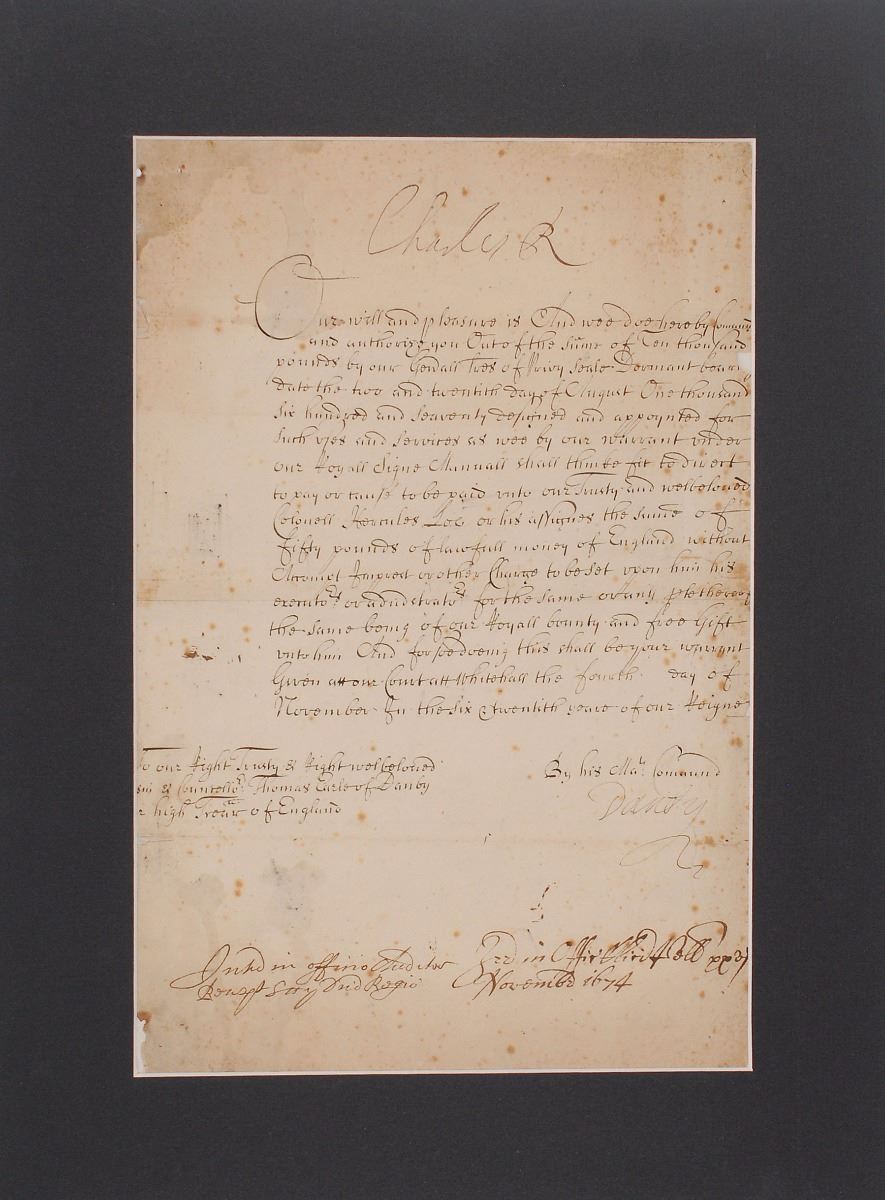 Charles R
Our will and pleasure is And wee doe hereby
and authorize you Out of the sume of Ten thousand
pounds by our Gen'all Tres of Privy Seale Dormant beari
date the two and twentith day of August One thousand
Six hundred and Seaventy designed and appointed for
such uses and services as wee by our warrant under
our Royall Signe Manuall shall thinke fit to direct
to pay or cause to be paid unto our Trusty and welbeloved
Colonell Hercules or his assignes the sume of
fifty pounds of lawfull money of England without
Accompt Imprest or other Charge to be set upon him his
executors or administrators for the same or any p'te thereof
the same being of our Royall bounty and free Gift
unto him And for soe doeing this shall be your warrant
Given att our Court att Whitehall the fourth day of
November In the six & twentith yeare of our Reigne
To our Right Trusty & Right welbeloved
& Councellor Thomas Earle of Danby
high Trear of England
By his Mats Comand
Danby
in officio Auditor
Recept
in Offic Pell
Novembr 1674